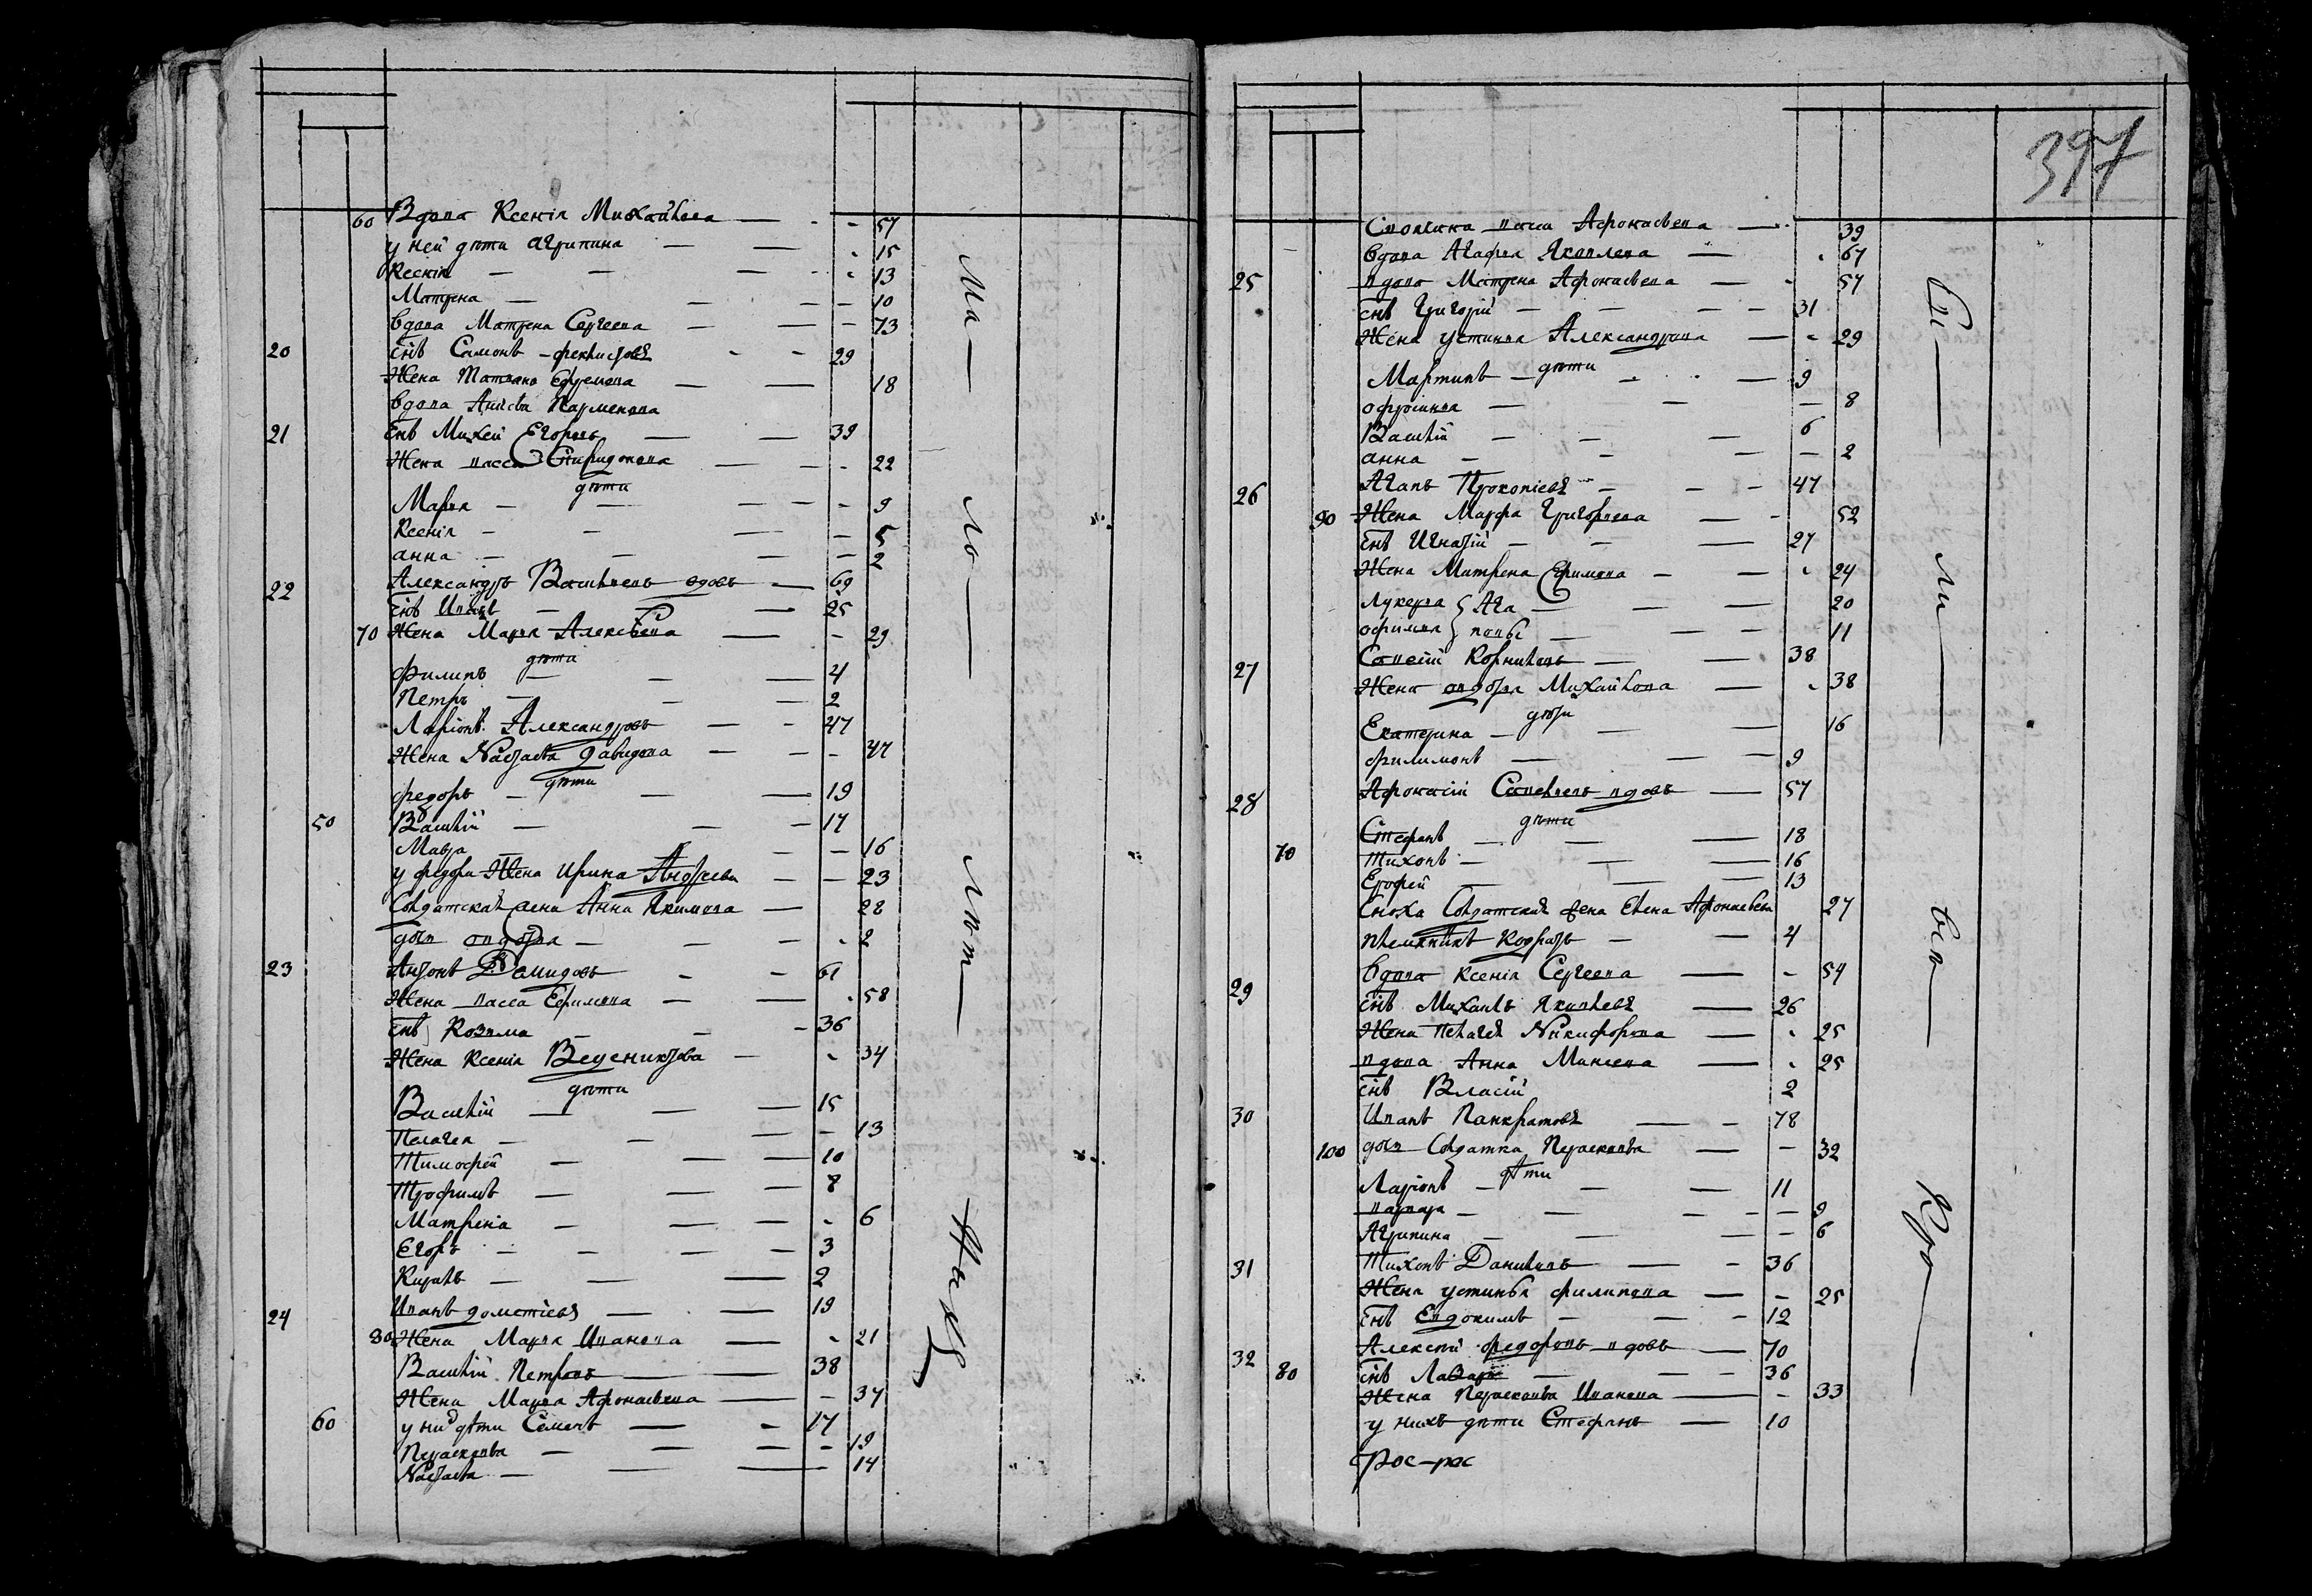 60 Вдова Ксенія Михайлова — 57
у ней дѣти Агрипина — 15
Ксенія — 13
Матрена — 10
вдова Матрена Сергеева — 73
20 Снъ Самонъ Феклистовъ — 29
Жена Татиана Ефремова — 18
вдова Парменова
21 Снъ Михей Егоровъ — 39
Жена васса Спиридонова — 22
дѣти
Марья — 9
Ксенія — 5
анна — 2
22 Александръ Васильевъ вдовъ — 69
Снъ Иванъ — 25
70 Жена Марья Алексѣева — 29
дѣти
Филипъ — 4
Петръ — 2
Ларіонъ Александровъ — 47
Жена Настасья Давидова — 47
дѣти
Федоръ — 19
50 Василій — 17
Мавра — 16
у федора Жена Ирина Андреева — 23
Солдатская жена Анна Якимова — 28
дочь овдотья — 2
23 Антонъ Демидовъ — 61
Жена васса Ефимова — 58
Снъ Козьма — 36
Жена Ксенія — 34
дѣти
Василій — 15
Пелагея — 13
Тимофей — 10
Трофимъ — 8
Матрена — 6
Егоръ — 3
Кирилъ — 2
24 Иванъ дометіевъ — 19
80 Жена Марья Иванова — 21
Василій Петровъ — 38
Жена Марья Афонасьева — 37
60 у них дѣти Семенъ — 17
Парасковья — 19
Настасья — 14
Ма — ло — лѣт — нахъ
397
Своячина васса Афонасьева — 39
вдова Агафья Яковлева — 67
25 вдова Матрена Афонасьева — 57
снъ Григорій — 31
Жена устинья Александрова — 29
дѣти
Мартинъ — 9
офросинья — 8
Василій — 6
анна — 2
26 Агапъ Прокопіевъ — 47
90 Жена Марфа Григорьева — 52
снъ Игнатій — 27
Жена Матрена Ефимова — 24
Лукерья } Ага — 20
офимья } повы — 11
27 Савелій Корниловъ — 38
Жена овдотья Михайлова — 38
дѣти
Екатерина — 16
филимонъ — 9
28 Афонасій Савельевъ вдовъ — 57
дѣти
Стефанъ — 18
70 Тихонъ — 16
Ерофей — 13
Сноха Солдатская жена Елена Афонасьева 27
племянникъ Кодратъ — 4
вдова Ксенія Сергеева — 54
29 Снъ Михаилъ Яковлевъ — 26
Жена пелагея Никифорова — 25
вдова Анна Моисеева — 25
снъ Власій 2
30 Иванъ Панкратовъ — 78
100 дочь Солдатка Парасковья — 32
дѣти
Ларіонъ — 11
варвара — 9
Агрипина — 6
31 Тихонъ Даниловъ — 36
Жена устинья филипова — 25
снъ Евдокимъ — 12
32 Алексѣй федоровъ вдовъ — 70
80 снъ Лазарь — 36
Жена Парасковья Иванова — 33
у нихъ дѣти Стефанъ — 10
Рос-рос
Бы — ли — вси — Кро —